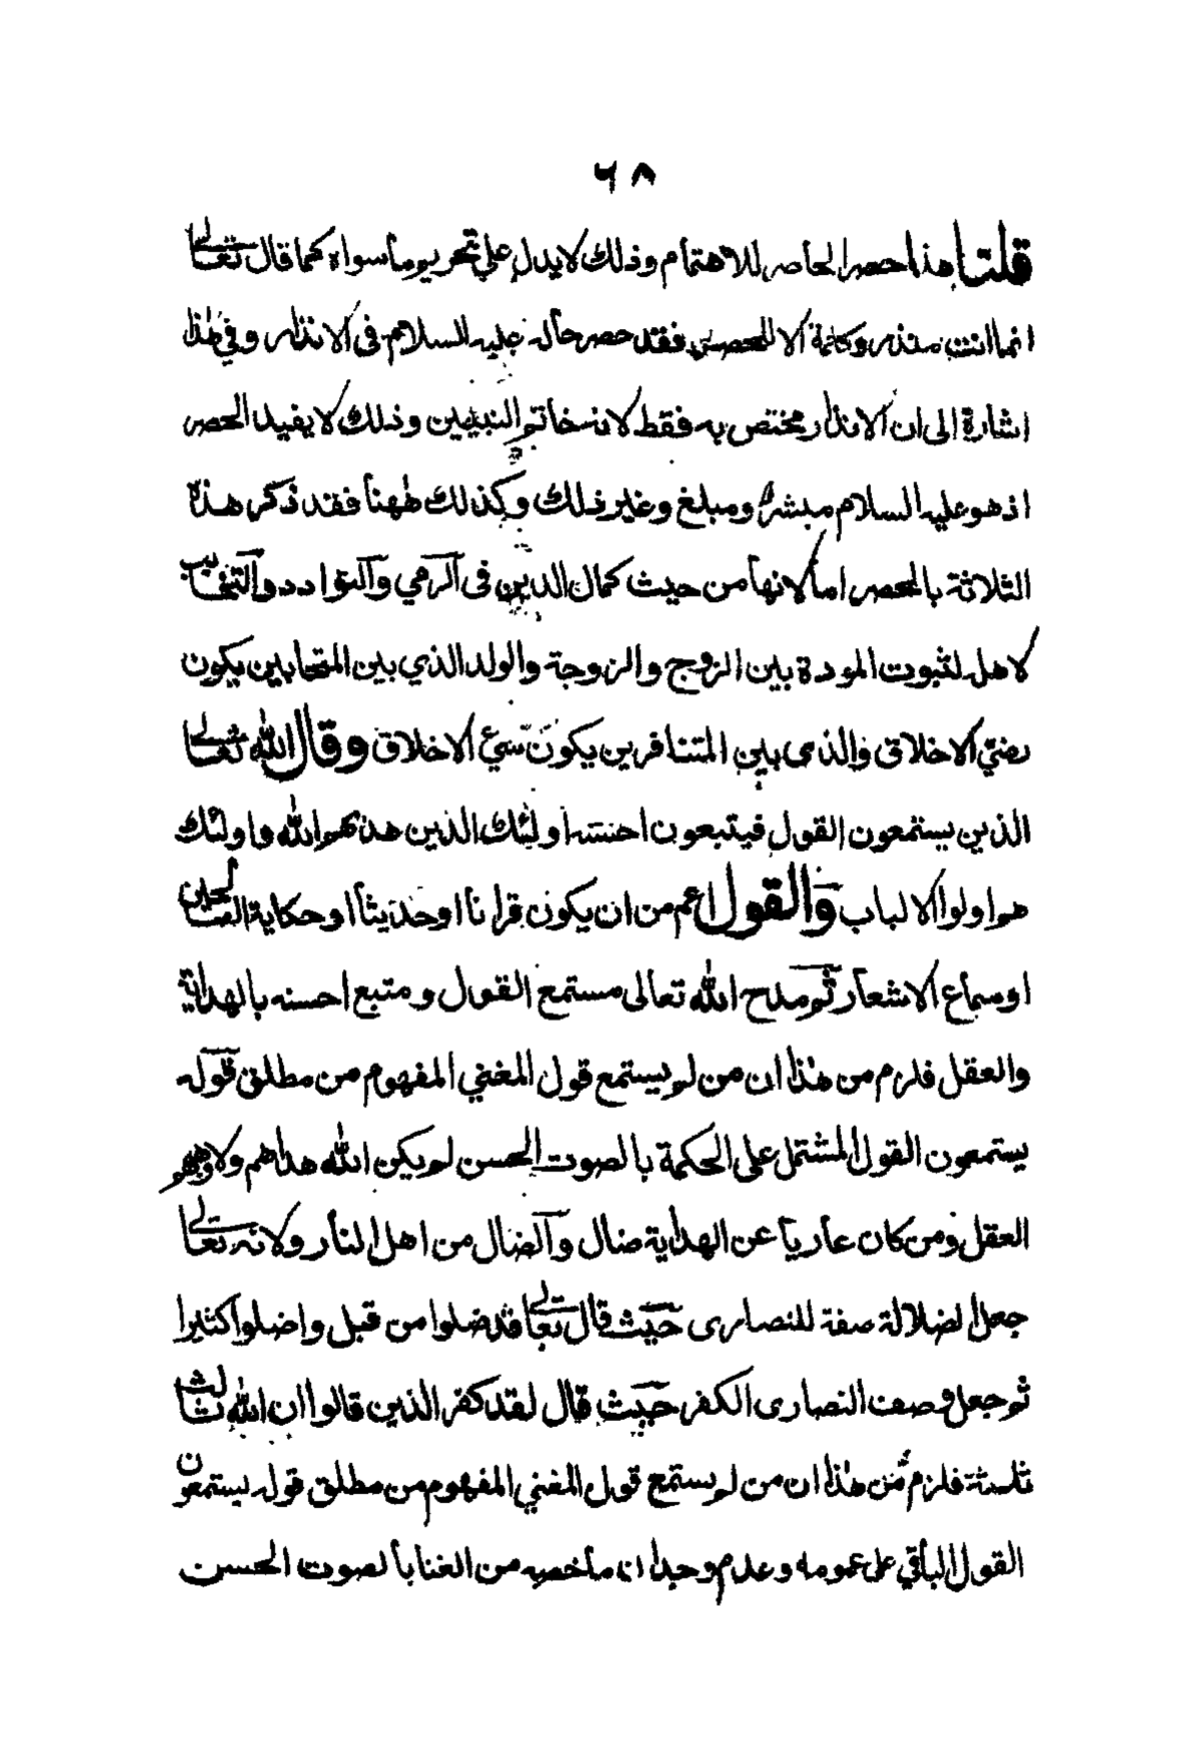 ٦٨
قلنا هذا حصر الحاصر للاهتمام وذلك لا يدل على تحريم ما سواه كما قال تعالى
انما انت منذر وكلمة الا للحصر فقد حصر حاله عليه السلام فى الانذار وفي هٰذا
اشارة الى ان الانذار مختص به فقط لانه خاتم النبيين وذلك لا يفيد الحصر
اذ هو عليه السلام مبشر ومبلغ وغير ذلك وكذلك هٰهنا فقد ذكر هذه
الثلاثة بالحصر اما لانها من حيث كمال الدين فى الرمي والتوادد والتخابب
لاهل لثبوت المودة بين الزوج والزوجة والولد الذي بين المتحابين يكون
رضيّ الاخلاق والذى بين المتنافرين يكون سيئ الاخلاق وقال الله تعالى
الذين يستمعون القول فيتبعون احسنه اولئك الذين هدٰهم الله واولئك
هم اولوا الالباب والقول اعم من ان يكون قرانا او حديثا او حكاية الصالحين
او سماع الاشعار ثم مدح الله تعالى مستمع القول ومتبع احسنه بالهداية
والعقل فلزم من هٰذا ان من لم يستمع قول المغني المفهوم من مطلق قوله
يستمعون القول المشتمل على الحكمة بالصوت الحسن لم يكن الله هداهم ولا وهبهم
العقل ومن كان عاريا عن الهداية ضال والضال من اهل النار ولانه تعالى
جعل الضلالة صفة للنصارى حيث قال تعالى قد ضلوا من قبل واضلوا كثيرا
ثم جعل وصف النصارى الكفر حيث قال لقد كفر الذين قالوا ان الله ثالث
ثلٰثة فلزم من هٰذا ان من لم يستمع قول المغني المفهوم من مطلق قوله يستمعون
القول الباقي على عمومه وعدم وجدان ما خصه من الغنا بالصوت الحسن